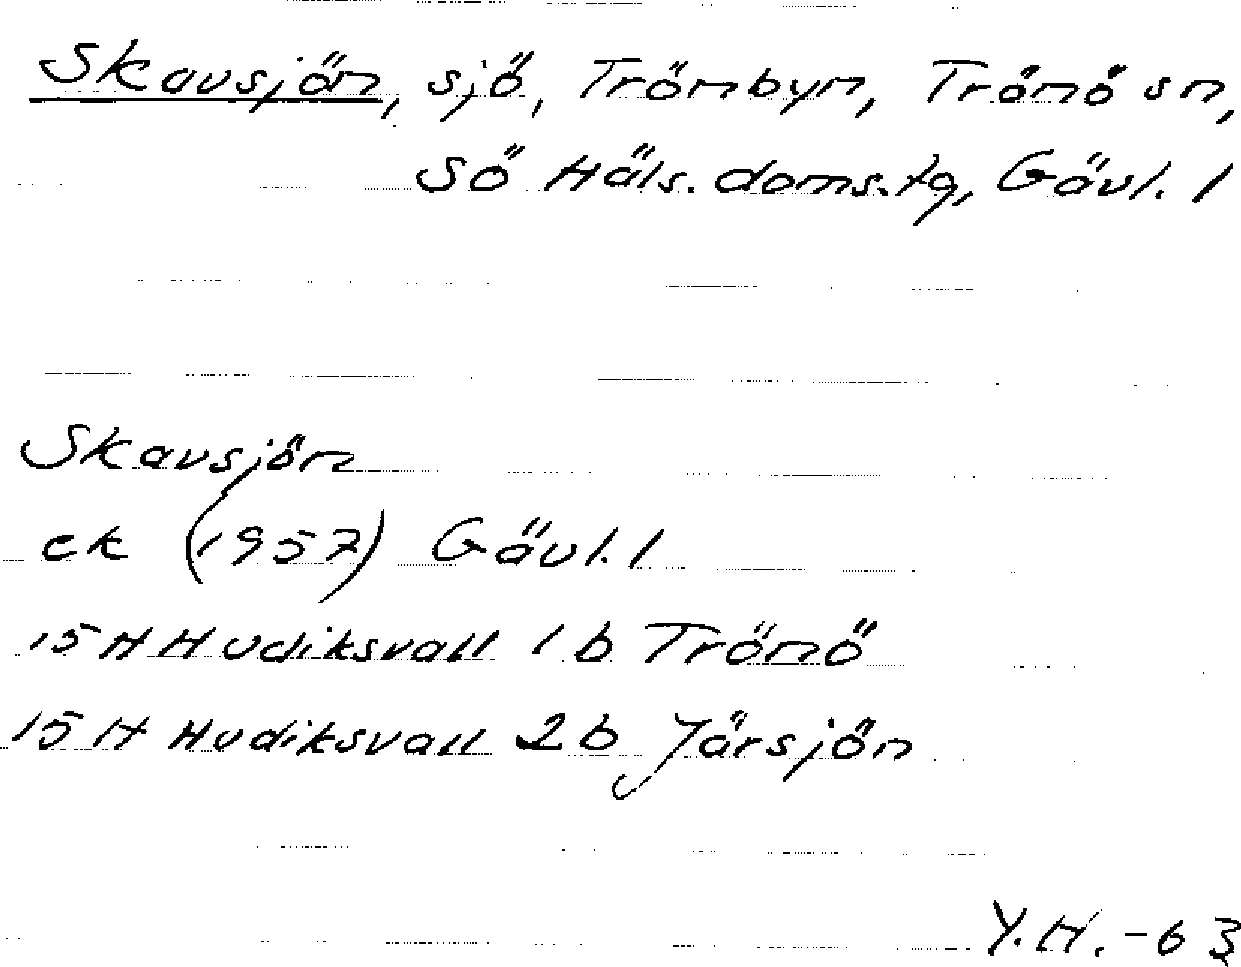 Skavsjön, sjö, Trönbyn, Trönö sn,
SÖ Häls. doms.tg, Gävl. l
Skavsjön
ek (1957) Gävl. l
15 H Hudiksvall 1 b Trönö
15 H Hudiksvall 2 b Järsjön
Y.H. -63